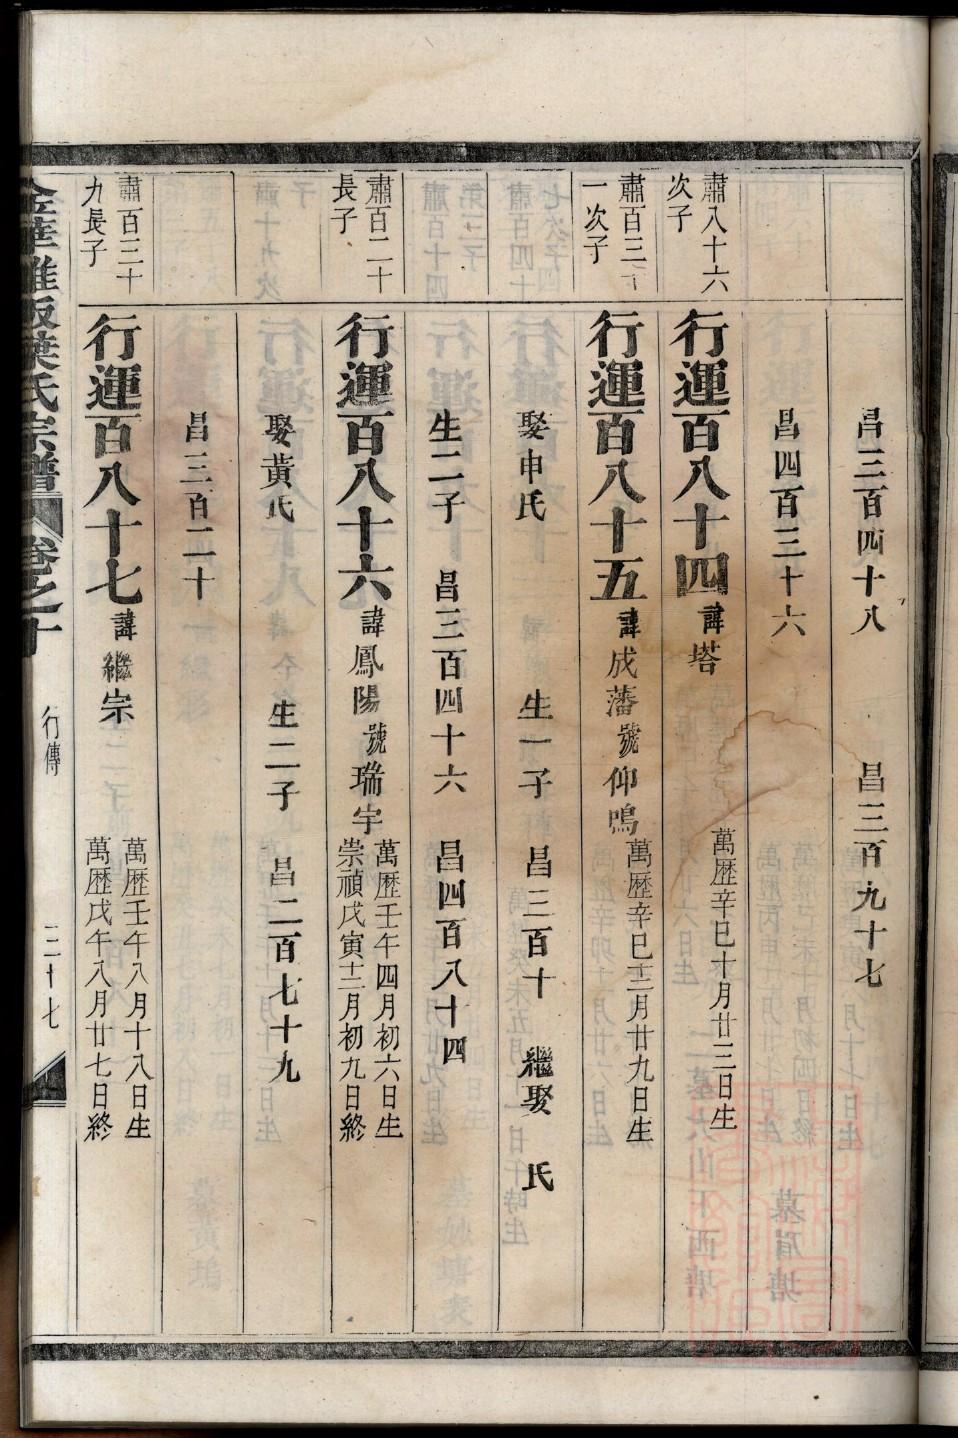 昌三百四十八　昌三百九十七
昌四百三十六
肅八十六
次子
行運百八十四　諱塔　萬歷辛巳十月廿三日生
肅百三十
一次子
行運百八十五　諱成藩　號仰鳴　萬歷辛巳十二月廿九日生
娶申氏　生一子　昌三百十　繼娶　氏
生二子　昌三百四十六　昌四百八十四
肅百二十
長子
行運百八十六　諱鳳陽　號瑞宇　萬歷壬午四月初六日生
崇禎戊寅十二月初九日終
娶黃氏　生二子　昌二百七十九
昌三百二十
肅百三十
九長子
行運百八十七　諱繼宗　萬歷壬午八月十八日生
萬歷戊午八月廿七日終
金華雅畈葉氏宗譜　卷之十　行傳　二十七